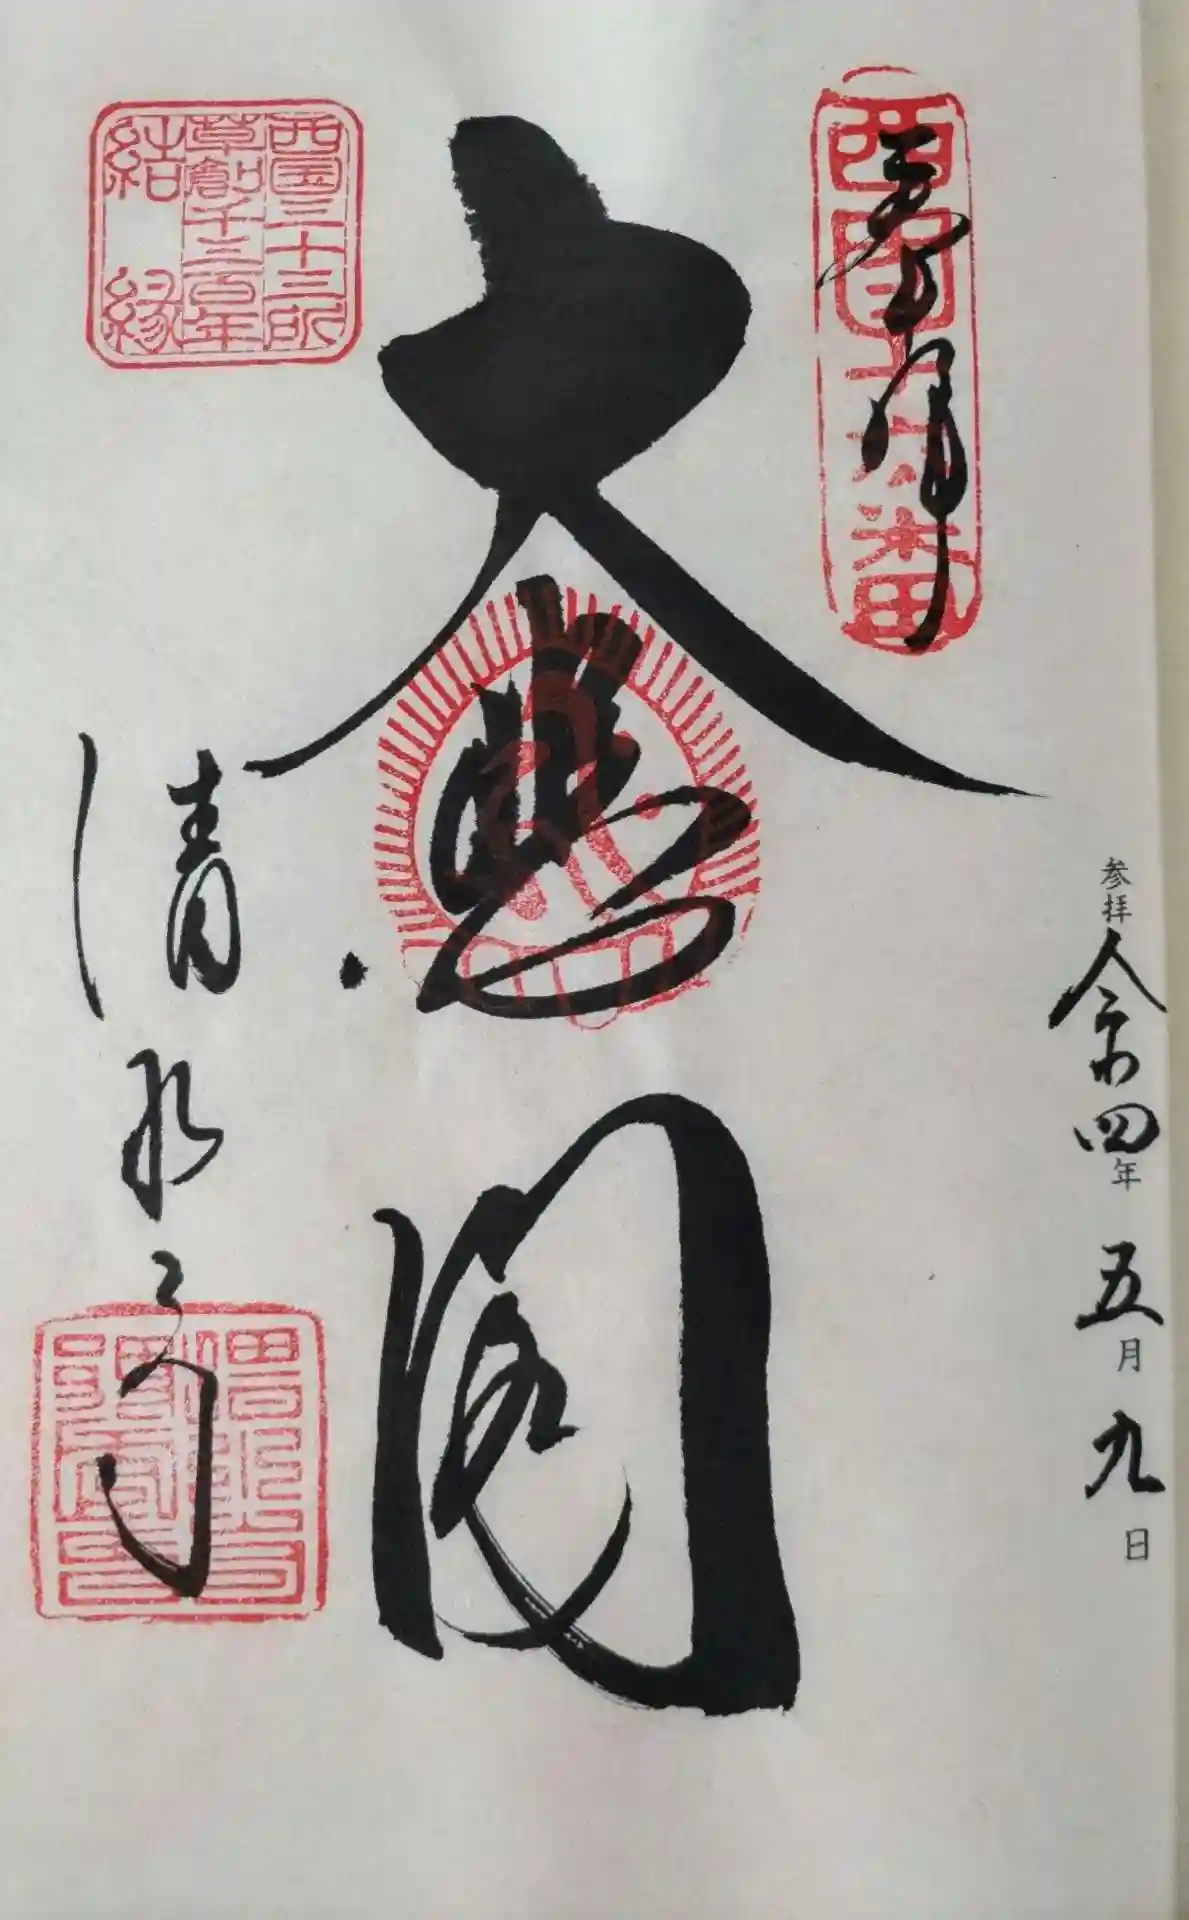 参拝 令和四年 五月 九日
西国十六番
奉拝
大悲閣
西国三十三所
草創千三百年
結縁
清水寺